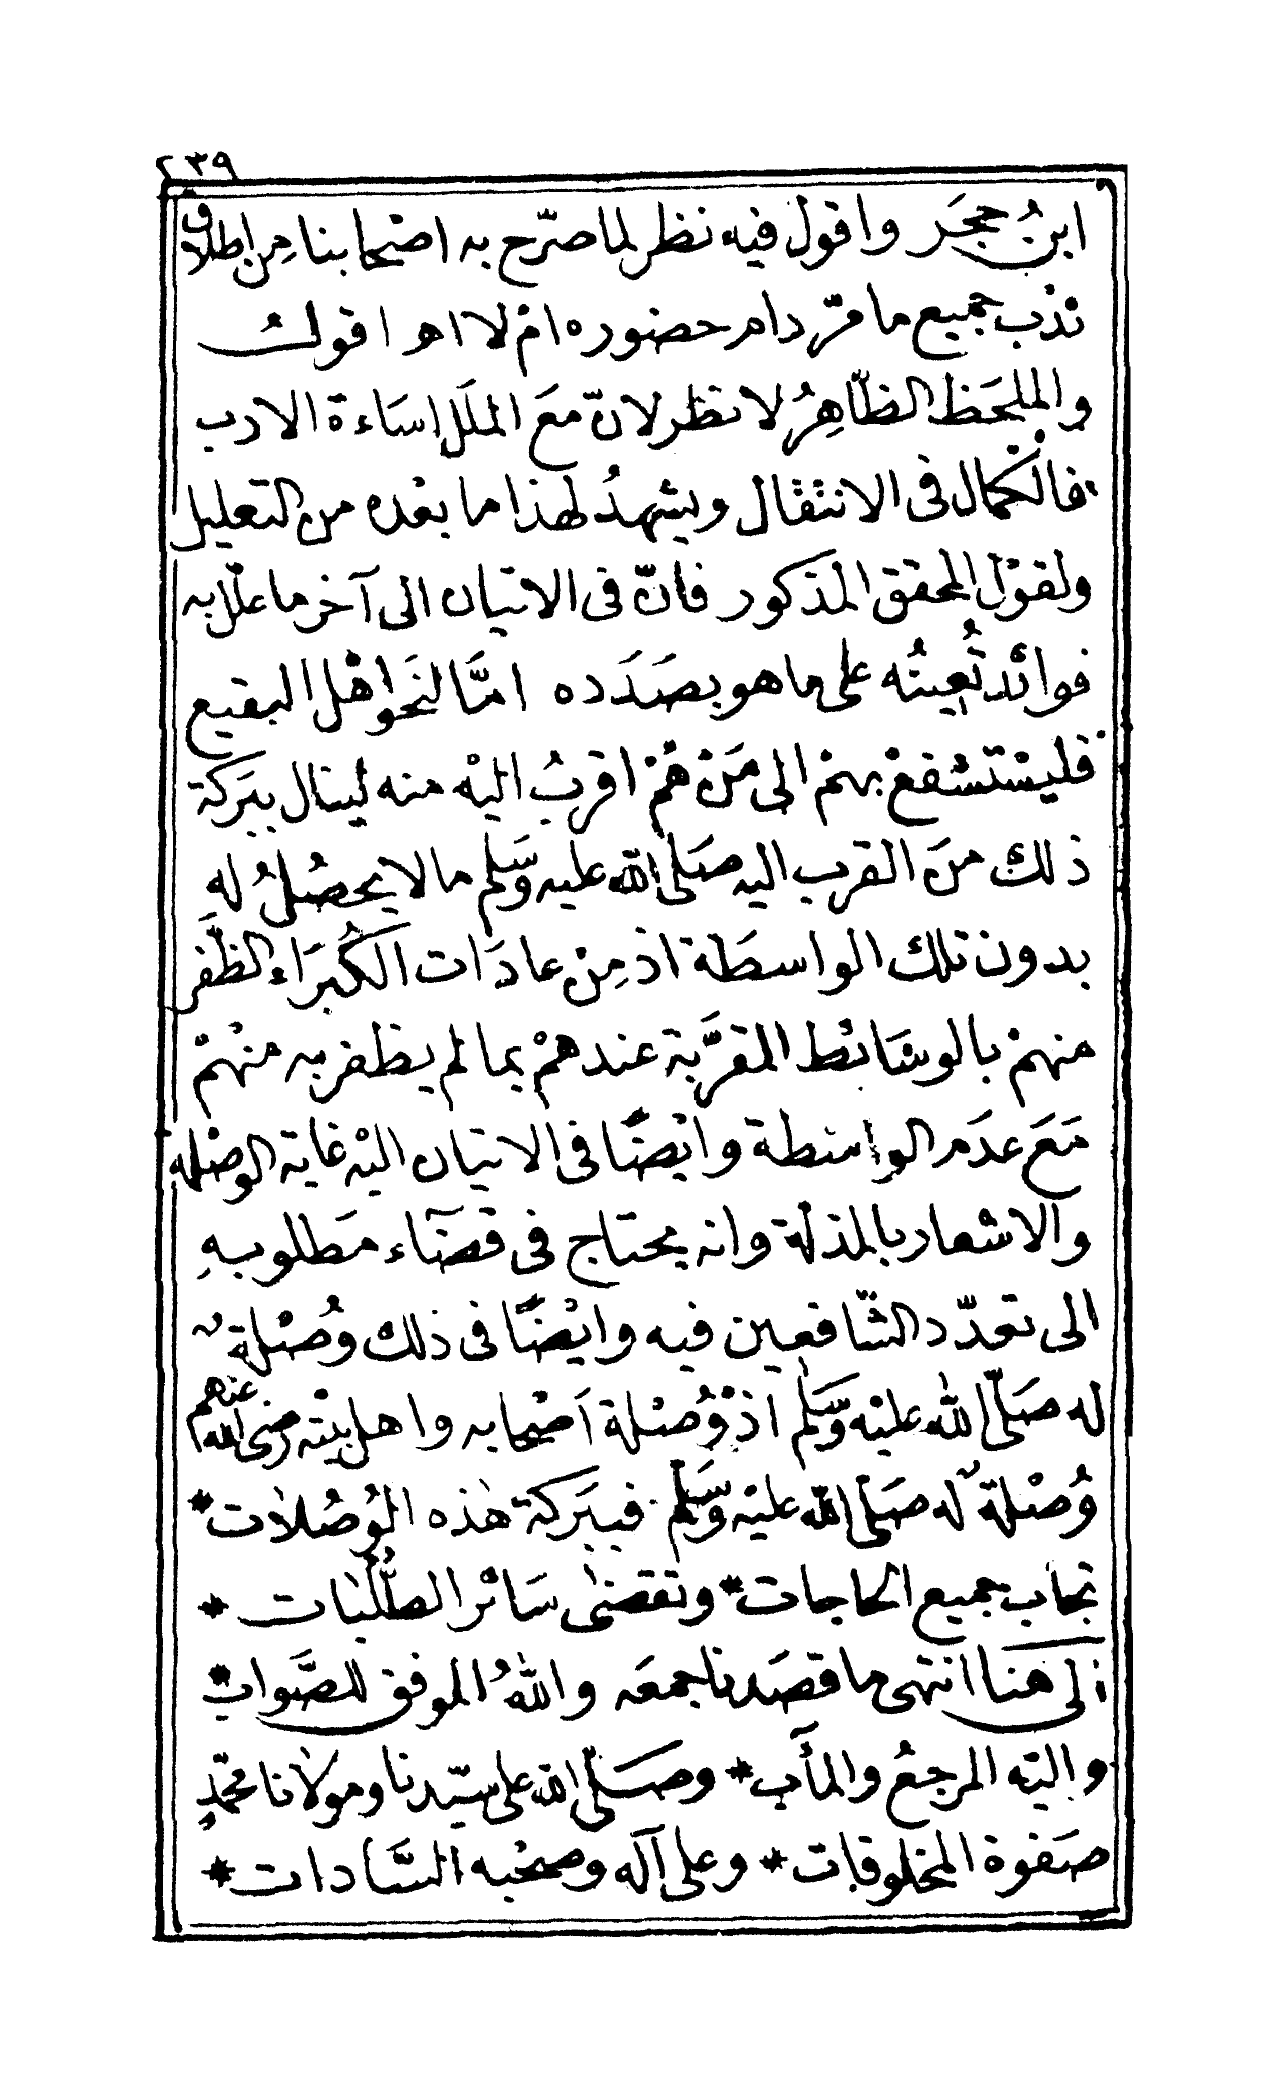 ٢٣٩
ابنُ حجَر واقول فيه نظر لما صرّح به اصْحابنا مِن اطلاق
ندْب جميع ما مرّ دام حضوره امْ لا اهـ اقولُ
والملحَظ الظّاهِرُ لا نظر لانّ معَ الملَل اِسَاءة الادب
فالْكمال فى الانتقال ويشهدُ لهذا ما بعْده من التعليل
ولقوْل المحقق المذكور فانّ فى الاتيان الى آخر ما علّلا به
فوائد تُعينُه على ما هو بصَدَده امَّا لنَحو اهْل البقيع
فليسْتشْفعْ بهمْ الى مَنْ همْ اقربُ اليْه منه لينال ببَركة
ذلك منَ القرب اليه صَلى الله عليه وسَلم ما لا يحصُلُ له
بدون تلك الواسطَة اذ مِنْ عادَات الكُبرَاء الظَّفر
منهمْ بالوسَائط المقرَّبة عندهمْ بما لم يظفر به منْهمْ
مَعَ عدَم الواسطة وايْضًا فى الاتيان اليْه غاية الوصْلة
والاشعار بالمذلة وانه يحتاج فى قضَآء مَطلوبهِ
الى تعدّد الشّافعين فيه وايْضًا فى ذلك وُصْلة
له صَلّى الله عليْه وسَّلم اذْ وُصْلة اَصْحابه واهل بيْته رضى الله عنهم
وُصْلة له صَلى الله عليْه وسَلم فببَركة هٰذه الوُصُلات *
تجاب جميع الحاجات * وتقضىٰ سَائر الطَّلَبات *
الى هنا انتهى ما قصَدنا جمعَه واللهُ الموفق للصَّواب *
واليْه المرجعُ والمأَب * وصَلّى الله على سيّدنا ومولانا محمّدٍ
صَفوة المخلوقات * وعلى آله وصحْبه السَّادات *